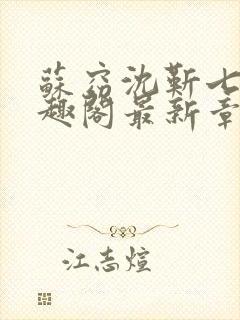 蘇窈沈靳七
趣閣最新章
江志煊